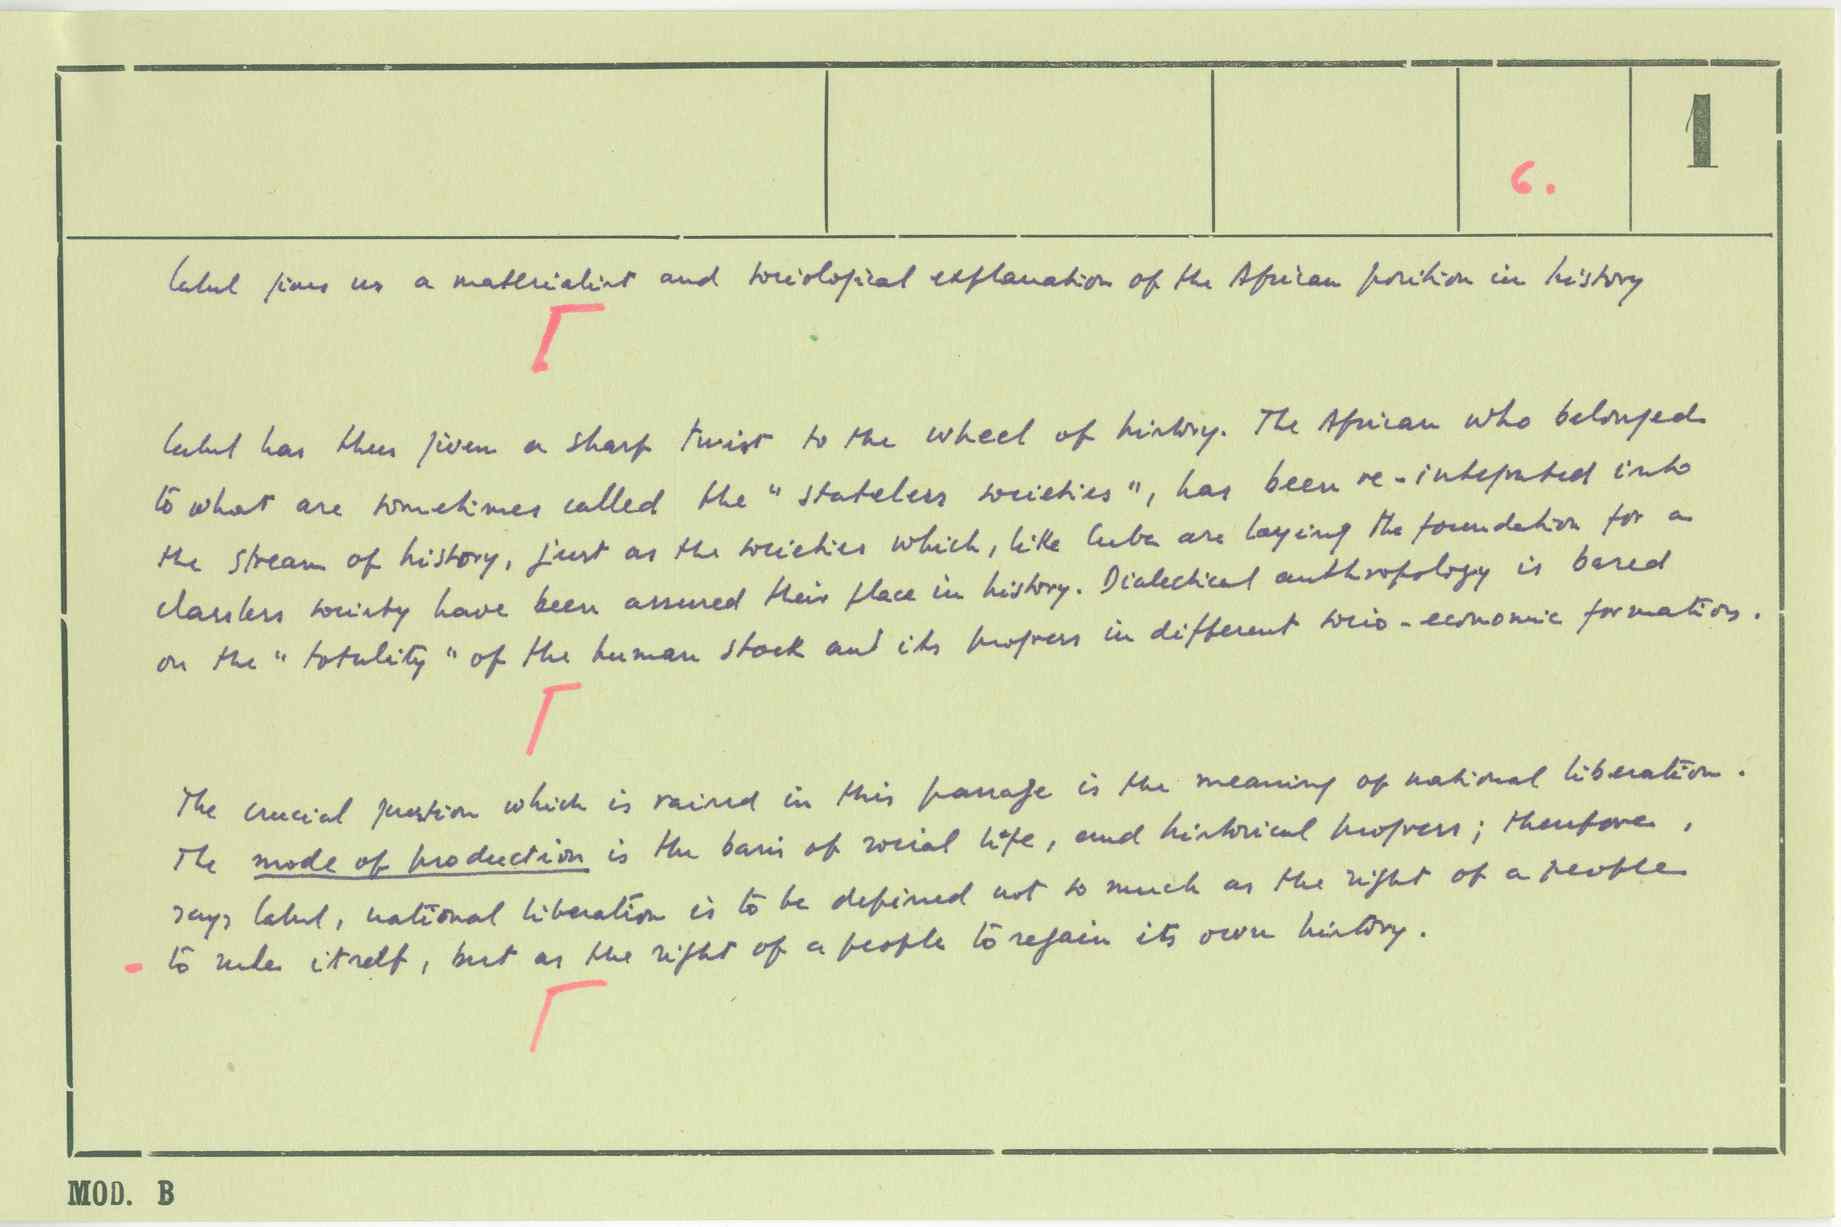 1
6.
Cabral gives us a materialist and sociological explanation of the African position in history
Cabral has thus given a sharp twist to the wheel of history. The African who belonged
to what are sometimes called the "stateless societies", has been re-integrated into
the stream of history, just as the societies which, like Cuba are laying the foundation for a
classless society have been assured their place in history. Dialectical anthropology is based
on the "totality" of the human stock and its progress in different socio-economic formations.
The crucial question which is raised in this passage is the meaning of national liberation.
The mode of production is the basis of social life, and historical progress; therefore,
says Cabral, national liberation is to be defined not so much as the right of a people
to rule itself, but as the right of a people to regain its own history.
MOD. B